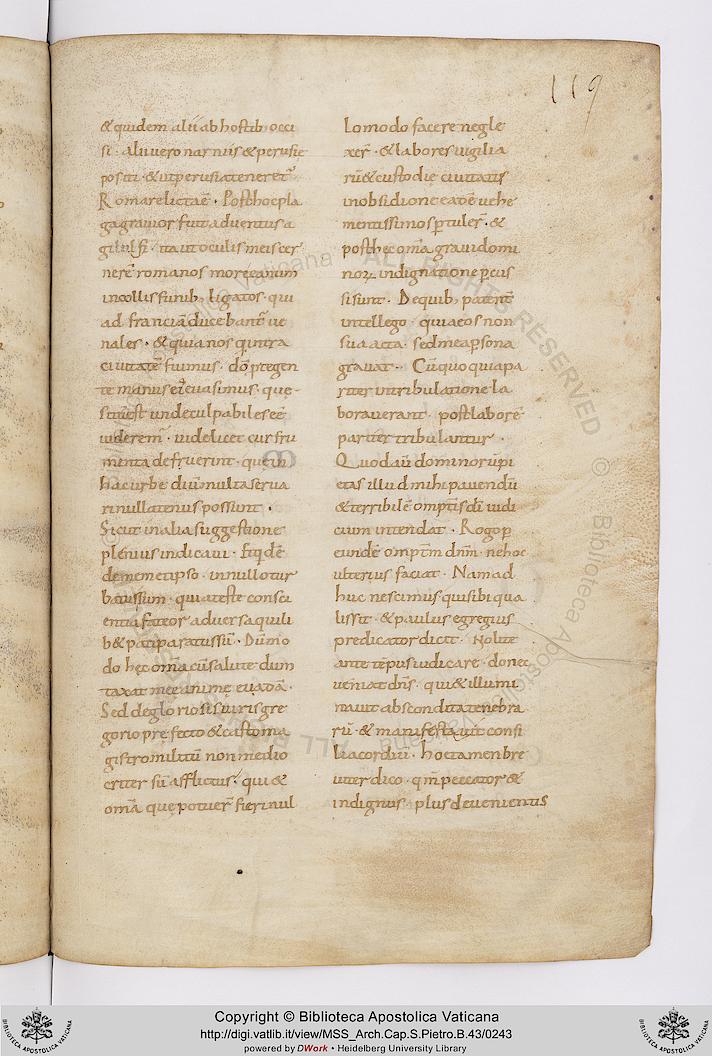 119
& quidem alii ab hostib; occi
si · alii vero narniis & perusie
positi · & ut perusia teneret᷑
Roma relicta ē · Post hoc pla
ga gravior fuit adventus a
gilulfi · ita ut oculis meis cer
nerē romanos more canum
in collis funib; ligatos · qui
ad franciā ducebant᷑ ve
nales · & quia nos q intra
civitatē fuimus · dō ptegen
te manus ei evasimus · que
situ est unde culpabiles eē
viderem᷑ · videlicet cur fru
menta defuerint · que in
hac urbe diu multa serva
ri nullatenus possunt ·
Sicut in alia suggestione
plenius indicavi · Et q̄dē
de memetipso in nullo tur
batus sum · quia teste consci
entia fateor adversa quili
b& pati paratus sū · Dū mo
do hęc om̄a cū salute dum
taxat meę animę evadā ·
Sed de gloriosis viris gre
gorio prefecto & casto ma
gistro militū non medio
criter sū afflictus · qui &
om̄ia que potuer̄ fieri nul
lo modo facere negle
xer̄ · & labores vigilia
rū & custodie civitatis
in obsidione eadē vehe
mentissimos ptuler̄ · &
post hec om̄a gravi domi
noꝝ indignatione pcus
si sunt · De quib; patent᷑
intellego · quia eos non
sua acta · sed mea psona
gravat · Cū quo quia pa
riter in tribulatione la
boraverant · post laborē
pariter tribulantur ·
Quod aū dominorū pi
etas illud mihi pavendū
& terribilē omptis dī iudi
cium intendat · Rogo p
eundē omptm dn̄m · ne hoc
ulterius faciat · Nam ad
huc nescimus quis ibi qua
lis sit · & paulus egregius
predicator dicit · Nolite
ante tēpus iudicare · donec
veniat dn̄s · qui & illumi
navit abscondita tenebra
rū · & manifestavit consi
lia cordiū · hoc tamen bre
viter dico · qm̄ peccator &
indignus · plus de venientis
Copyright © Biblioteca Apostolica Vaticana
http://digi.vatlib.it/view/MSS_Arch.Cap.S.Pietro.B.43/0243
powered by DWork • Heidelberg University Library